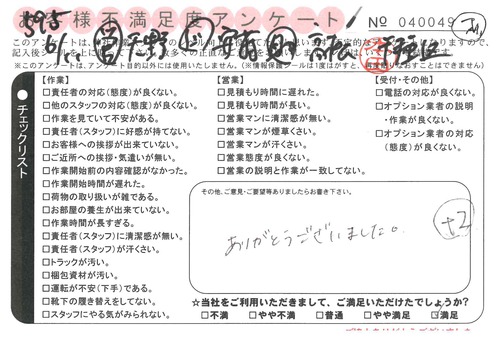 お客様不満足度アンケート
No 040049
【作業】
□責任者の対応(態度)が良くない。
□他のスタッフの対応(態度)が良くない。
□作業を見ていて不安がある。
□責任者(スタッフ)に好感が持てない。
□お客様への挨拶が出来ていない。
□ご近所への挨拶・気遣いが無い。
□作業開始前の内容確認がなかった。
□作業開始時間が遅れた。
□荷物の取り扱いが雑である。
□お部屋の養生が出来ていない。
□作業時間が長すぎる。
□責任者(スタッフ)に清潔感が無い。
□責任者(スタッフ)が汗くさい。
□トラックが汚い。
□梱包資材が汚い。
□運転が不安(下手)である。
□靴下の履き替えをしてない。
□スタッフにやる気がみられない。
【営業】
□見積もり時間に遅れた。
□見積もり時間が長い。
□営業マンに清潔感が無い。
□営業マンが煙草くさい。
□営業マンが汗くさい。
□営業態度が良くない。
□営業の説明と作業が一致してない。
【受付・その他】
□電話の対応が良くない。
□オプション業者の説明
・作業が良くない。
□オプション業者の対応
(態度)が良くない。
チェックリスト
その他、ご意見・ご要望等ありましたらお書き下さい。
ありがとうございました。
+2
☆当社をご利用いただきまして、ご満足いただけたでしょうか?
□不満 □やや不満 □普通 □やや満足 □満足